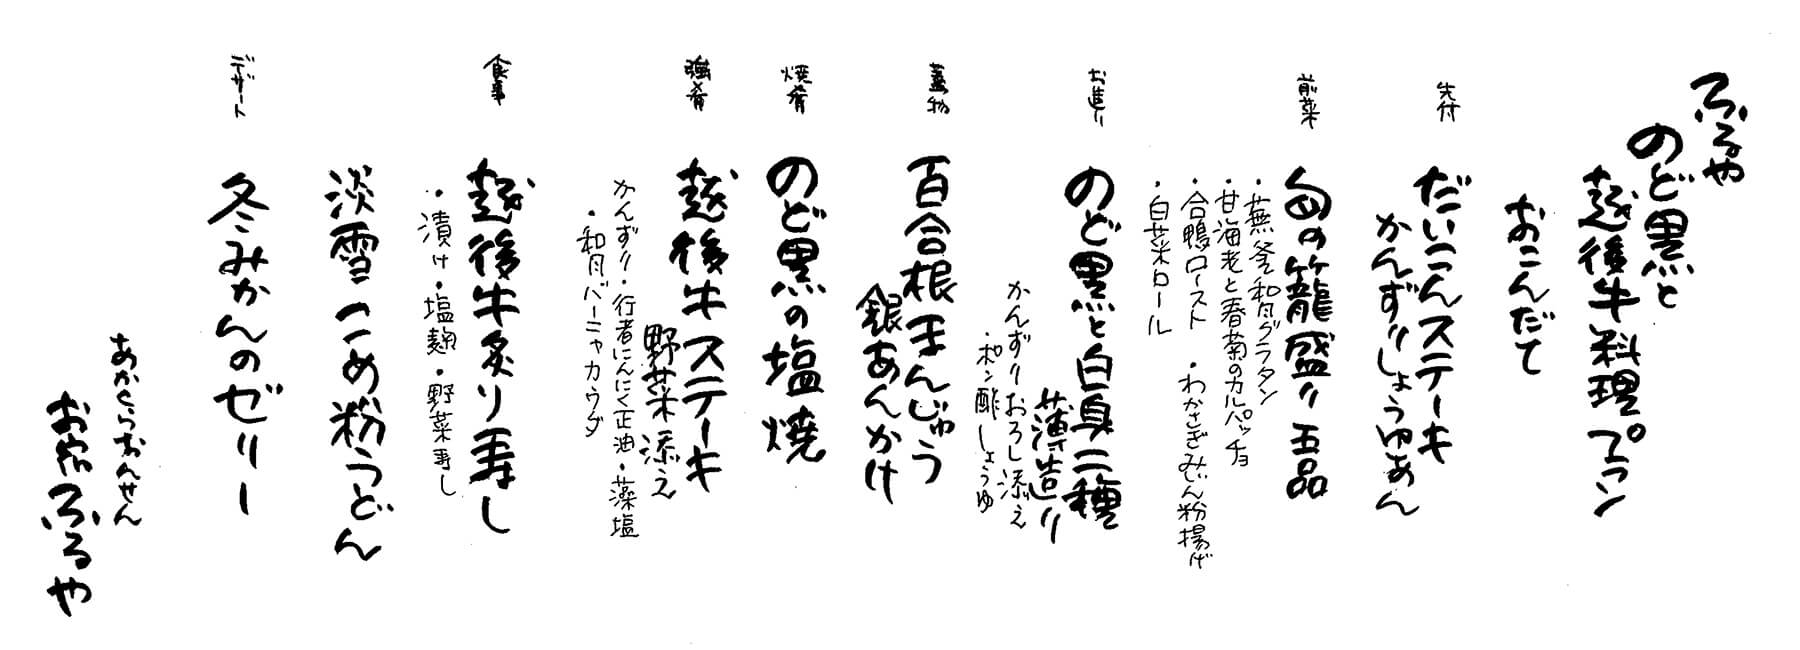 ふるや
のど黒と
越後牛料理プラン
おこんだて
先付
だいこんステーキ
かんずりしょうゆあん
前菜
旬の籠盛り 五品
・蕪釜和風グラタン
・甘海老と春菊のカルパッチョ
・合鴨ロースト ・わかさぎみじん粉揚げ
・白菜ロール
お造り
のど黒と白身二種
薄造り
かんずりおろし添え
・ポン酢しょうゆ
蓋物
百合根まんじゅう
銀あんかけ
焼肴
のど黒の塩焼
強肴
越後牛ステーキ
野菜添え
かんずり・行者にんにく正油・藻塩
・和風バーニャカウダ
食事
越後牛炙り寿し
・漬け・塩麹・野菜寿し
淡雪こめ粉うどん
デザート
冬みかんのゼリー
あかくらおんせん
お宿ふるや